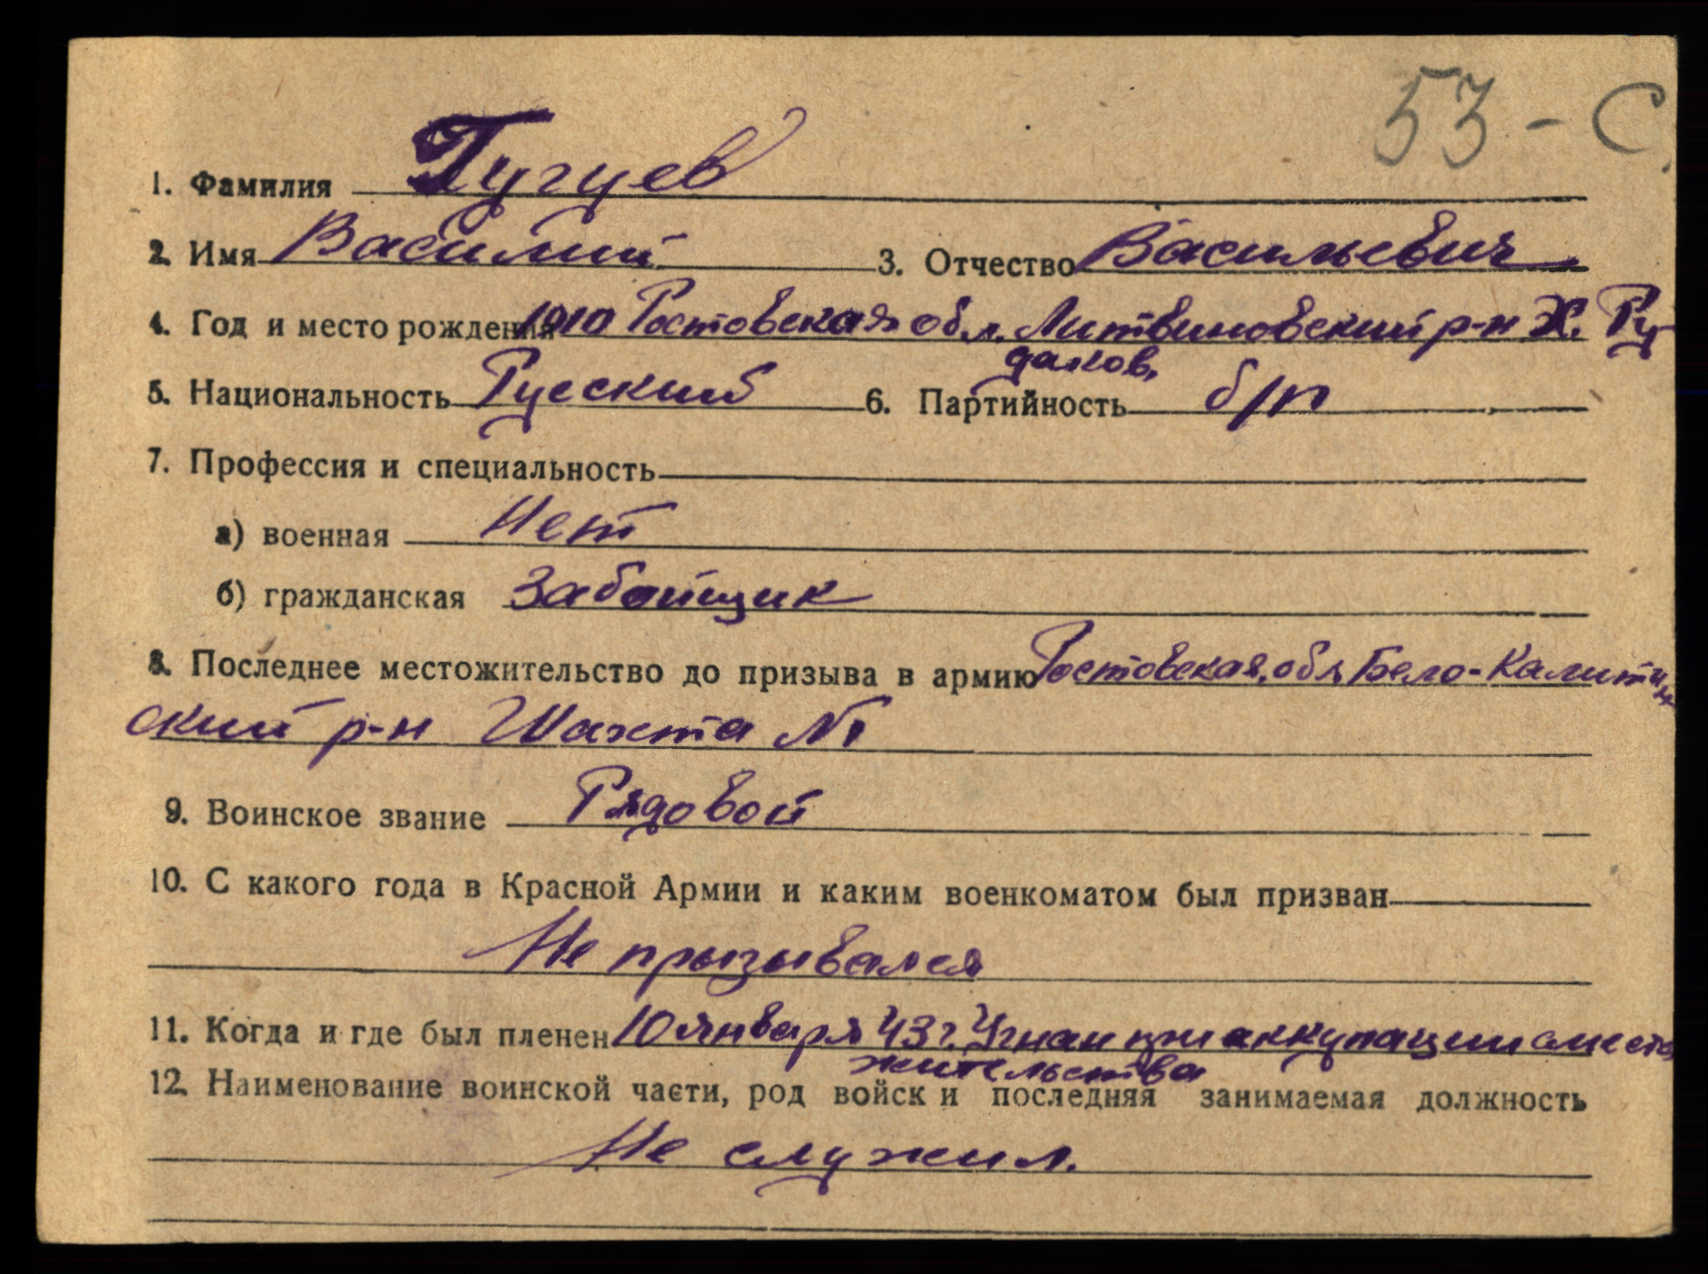 53 - С.
1. Фамилия Гугуев
2. Имя Василий 3. Отчество Васильевич
4. Год и место рождения 1910 Ростовская обл. Литвиновский р-н х. Ру-
даков,
5. Национальность Русский 6. Партийность б/п
7. Профессия и специальность
а) военная Нет
б) гражданская Забойщик
8. Последнее местожительство до призыва в армию Ростовская обл Бело-Калитин
ский р-н Шахта №1
9. Воинское звание Рядовой
10. С какого года в Красной Армии и каким военкоматом был призван
Не прызывался
11. Когда и где был пленен 10 января 43 г. Угнан при аккупации с места
жительства
12. Наименование воинской части, род войск и последняя занимаемая должность
Не служил.